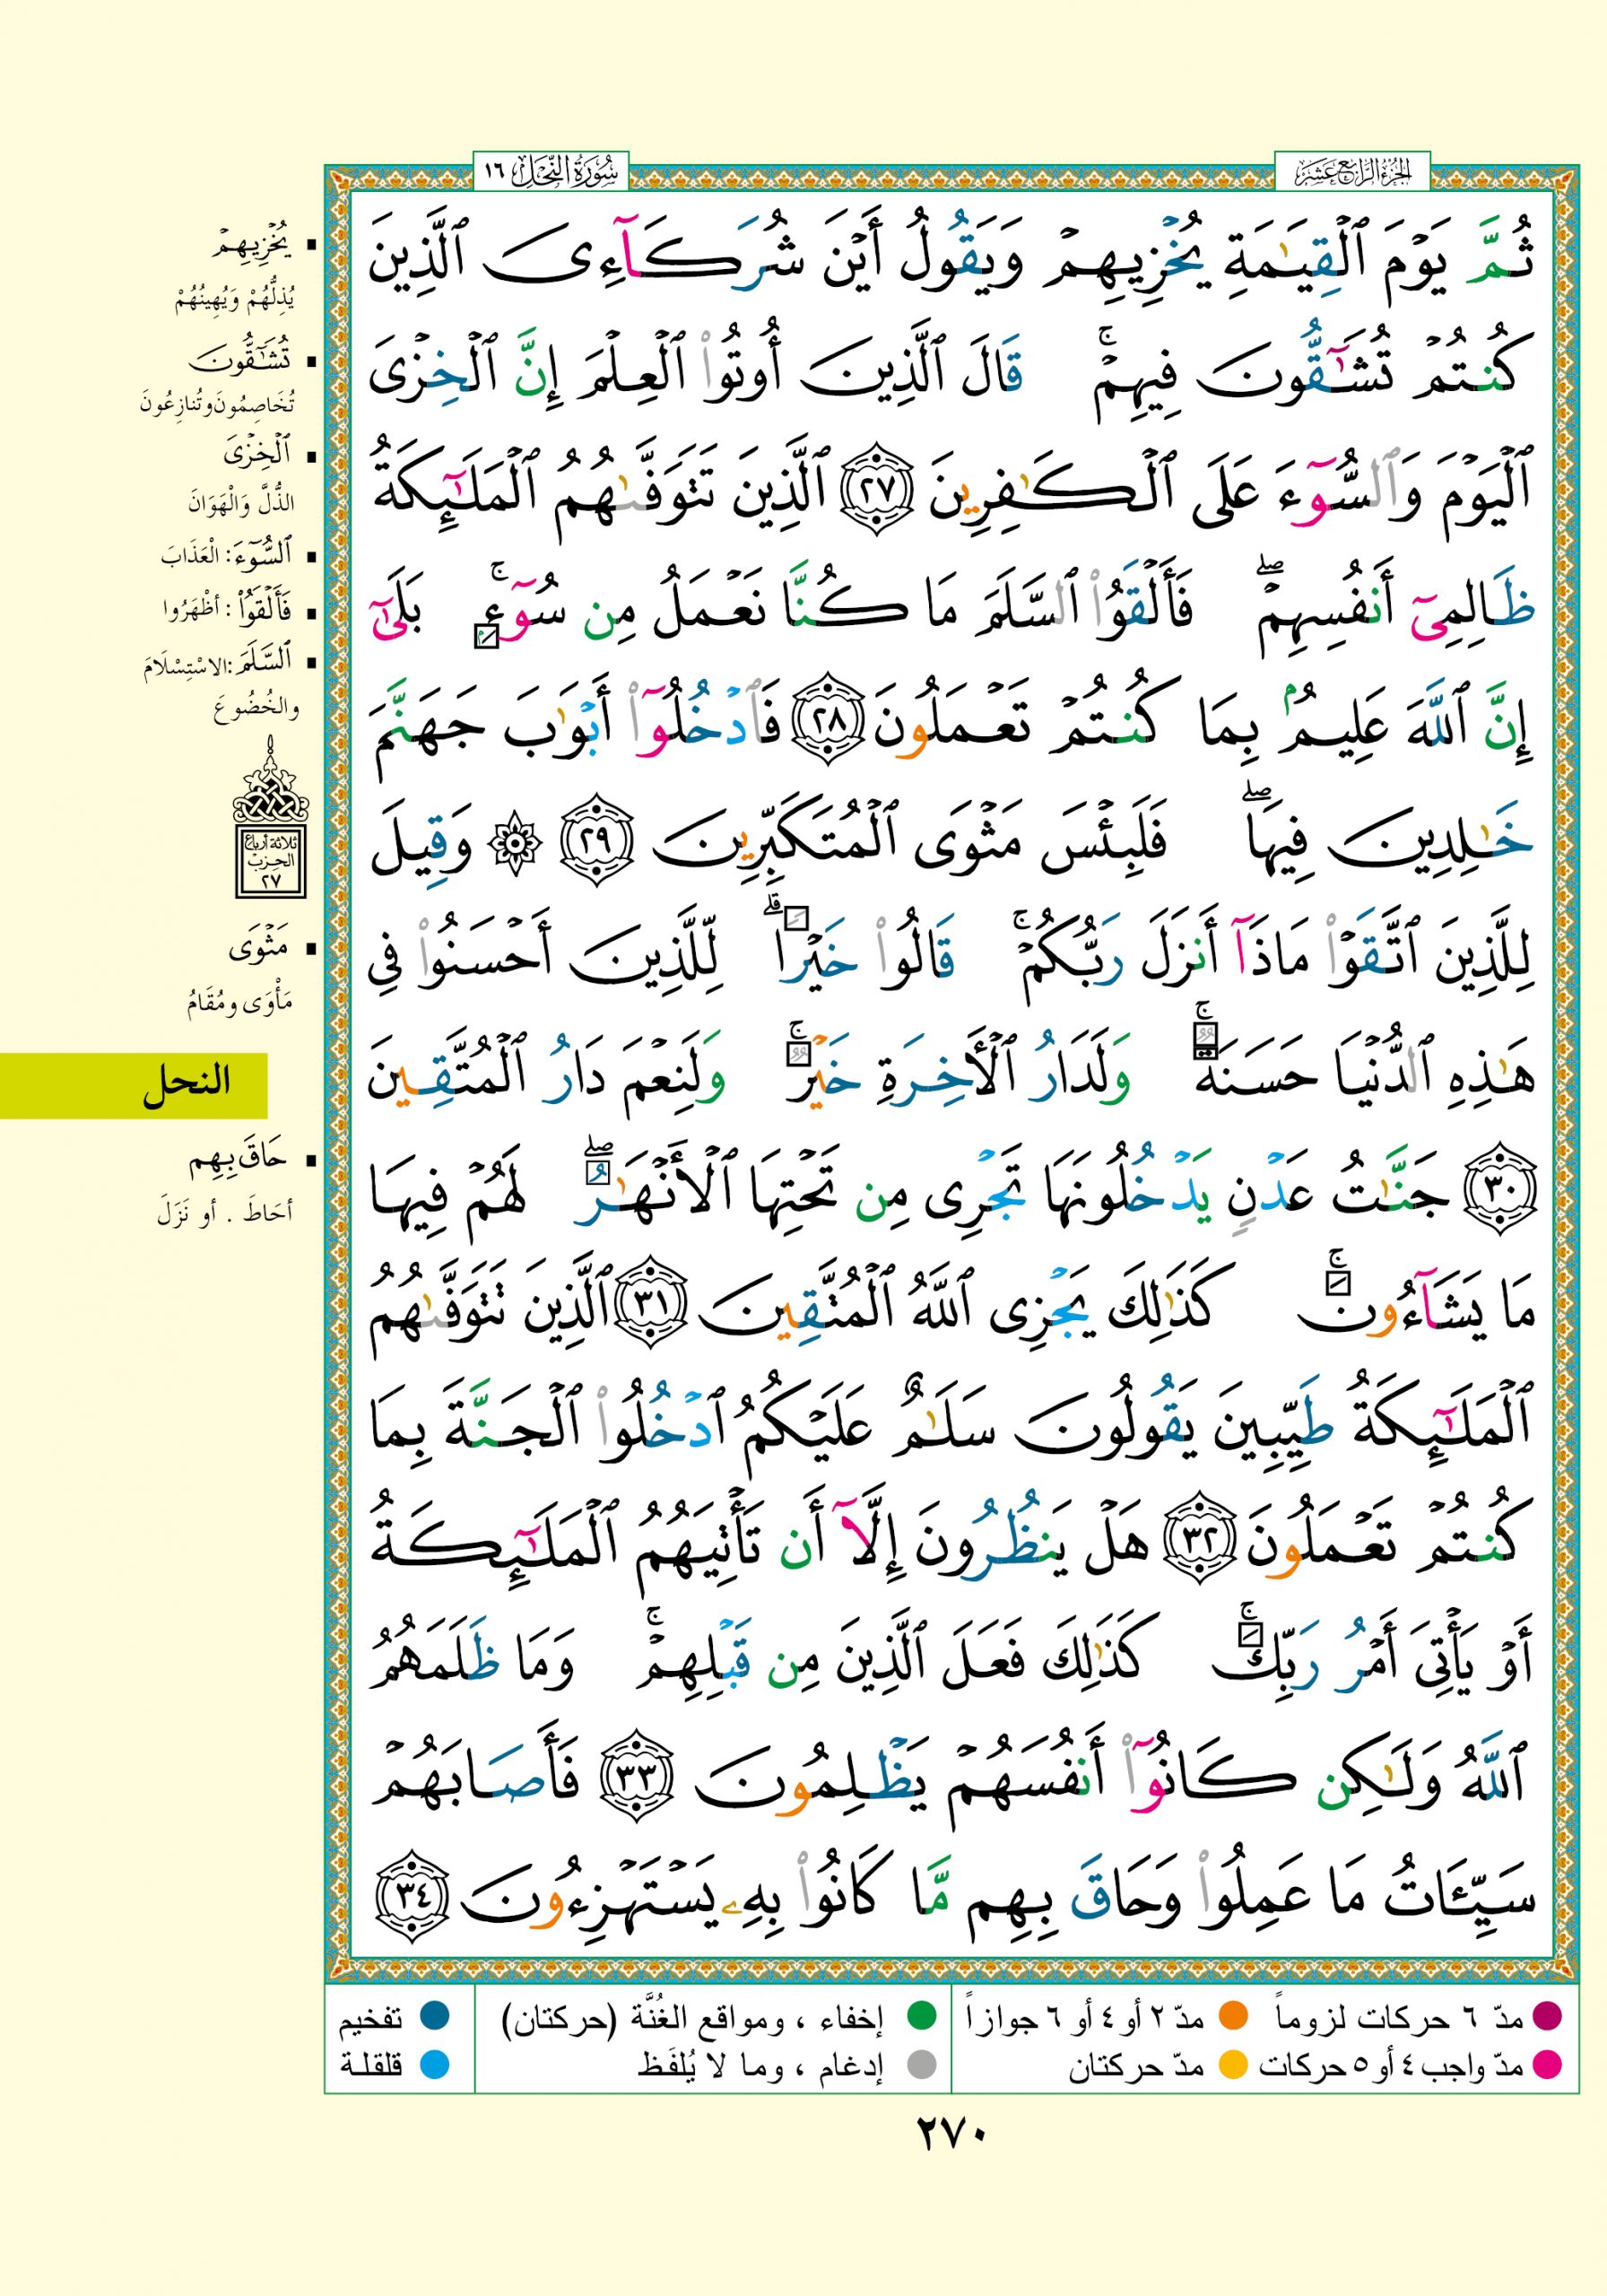 الجزء الرابع عشر
سورة النحل ١٦
ثُمَّ يَوْمَ ٱلْقِيَٰمَةِ يُخْزِيهِمْ وَيَقُولُ أَيْنَ شُرَكَآءِىَ ٱلَّذِينَ
كُنتُمْ تُشَٰٓقُّونَ فِيهِمْ ۚ قَالَ ٱلَّذِينَ أُوتُوا۟ ٱلْعِلْمَ إِنَّ ٱلْخِزْىَ
ٱلْيَوْمَ وَٱلسُّوٓءَ عَلَى ٱلْكَٰفِرِينَ ٢٧ ٱلَّذِينَ تَتَوَفَّىٰهُمُ ٱلْمَلَٰٓئِكَةُ
ظَالِمِىٓ أَنفُسِهِمْ ۖ فَأَلْقَوُا۟ ٱلسَّلَمَ مَا كُنَّا نَعْمَلُ مِن سُوٓءٍۭ ۚ بَلَىٰٓ
إِنَّ ٱللَّهَ عَلِيمٌۢ بِمَا كُنتُمْ تَعْمَلُونَ ٢٨ فَٱدْخُلُوٓا۟ أَبْوَٰبَ جَهَنَّمَ
خَٰلِدِينَ فِيهَا ۖ فَلَبِئْسَ مَثْوَى ٱلْمُتَكَبِّرِينَ ٢٩ ۞ وَقِيلَ
لِلَّذِينَ ٱتَّقَوْا۟ مَاذَآ أَنزَلَ رَبُّكُمْ ۚ قَالُوا۟ خَيْرًا ۗ لِّلَّذِينَ أَحْسَنُوا۟ فِى
هَٰذِهِ ٱلدُّنْيَا حَسَنَةٌ ۚ وَلَدَارُ ٱلْأَخِرَةِ خَيْرٌ ۚ وَلَنِعْمَ دَارُ ٱلْمُتَّقِينَ
٣٠ جَنَّٰتُ عَدْنٍ يَدْخُلُونَهَا تَجْرِى مِن تَحْتِهَا ٱلْأَنْهَٰرُ ۖ لَهُمْ فِيهَا
مَا يَشَآءُونَ ۚ كَذَٰلِكَ يَجْزِى ٱللَّهُ ٱلْمُتَّقِينَ ٣١ ٱلَّذِينَ تَتَوَفَّىٰهُمُ
ٱلْمَلَٰٓئِكَةُ طَيِّبِينَ يَقُولُونَ سَلَٰمٌ عَلَيْكُمُ ٱدْخُلُوا۟ ٱلْجَنَّةَ بِمَا
كُنتُمْ تَعْمَلُونَ ٣٢ هَلْ يَنظُرُونَ إِلَّآ أَن تَأْتِيَهُمُ ٱلْمَلَٰٓئِكَةُ
أَوْ يَأْتِىَ أَمْرُ رَبِّكَ ۚ كَذَٰلِكَ فَعَلَ ٱلَّذِينَ مِن قَبْلِهِمْ ۚ وَمَا ظَلَمَهُمُ
ٱللَّهُ وَلَٰكِن كَانُوٓا۟ أَنفُسَهُمْ يَظْلِمُونَ ٣٣ فَأَصَابَهُمْ
سَيِّـَٔاتُ مَا عَمِلُوا۟ وَحَاقَ بِهِم مَّا كَانُوا۟ بِهِۦ يَسْتَهْزِءُونَ ٣٤
يُخْزِيهِمْ
يُذِلُّهُمْ وَيُهِينُهُمْ
تُشَٰٓقُّونَ
تُخَاصِمُونَ وتُنازِعُونَ
ٱلْخِزْىَ
الذُّلَّ وَالْهَوَانَ
ٱلسُّوٓءَ: الْعَذَابَ
فَأَلْقَوُا۟: أظْهَرُوا
ٱلسَّلَمَ: الاسْتِسْلَامَ
والخُضُوعَ
ثلاثة أرباع
الحزب
٢٧
مَثْوَى
مَأْوَى ومُقَامُ
النحل
حَاقَ بِهِم
أحَاطَ . أو نَزَلَ
مدّ ٦ حركات لزوماً
مدّ ٢ أو ٤ أو ٦ جوازاً
إخفاء ، ومواقع الغُنَّة (حركتان)
تفخيم
مدّ واجب ٤ أو ٥ حركات
مدّ حركتان
إدغام ، وما لا يُلفَظ
قلقلة
٢٧٠